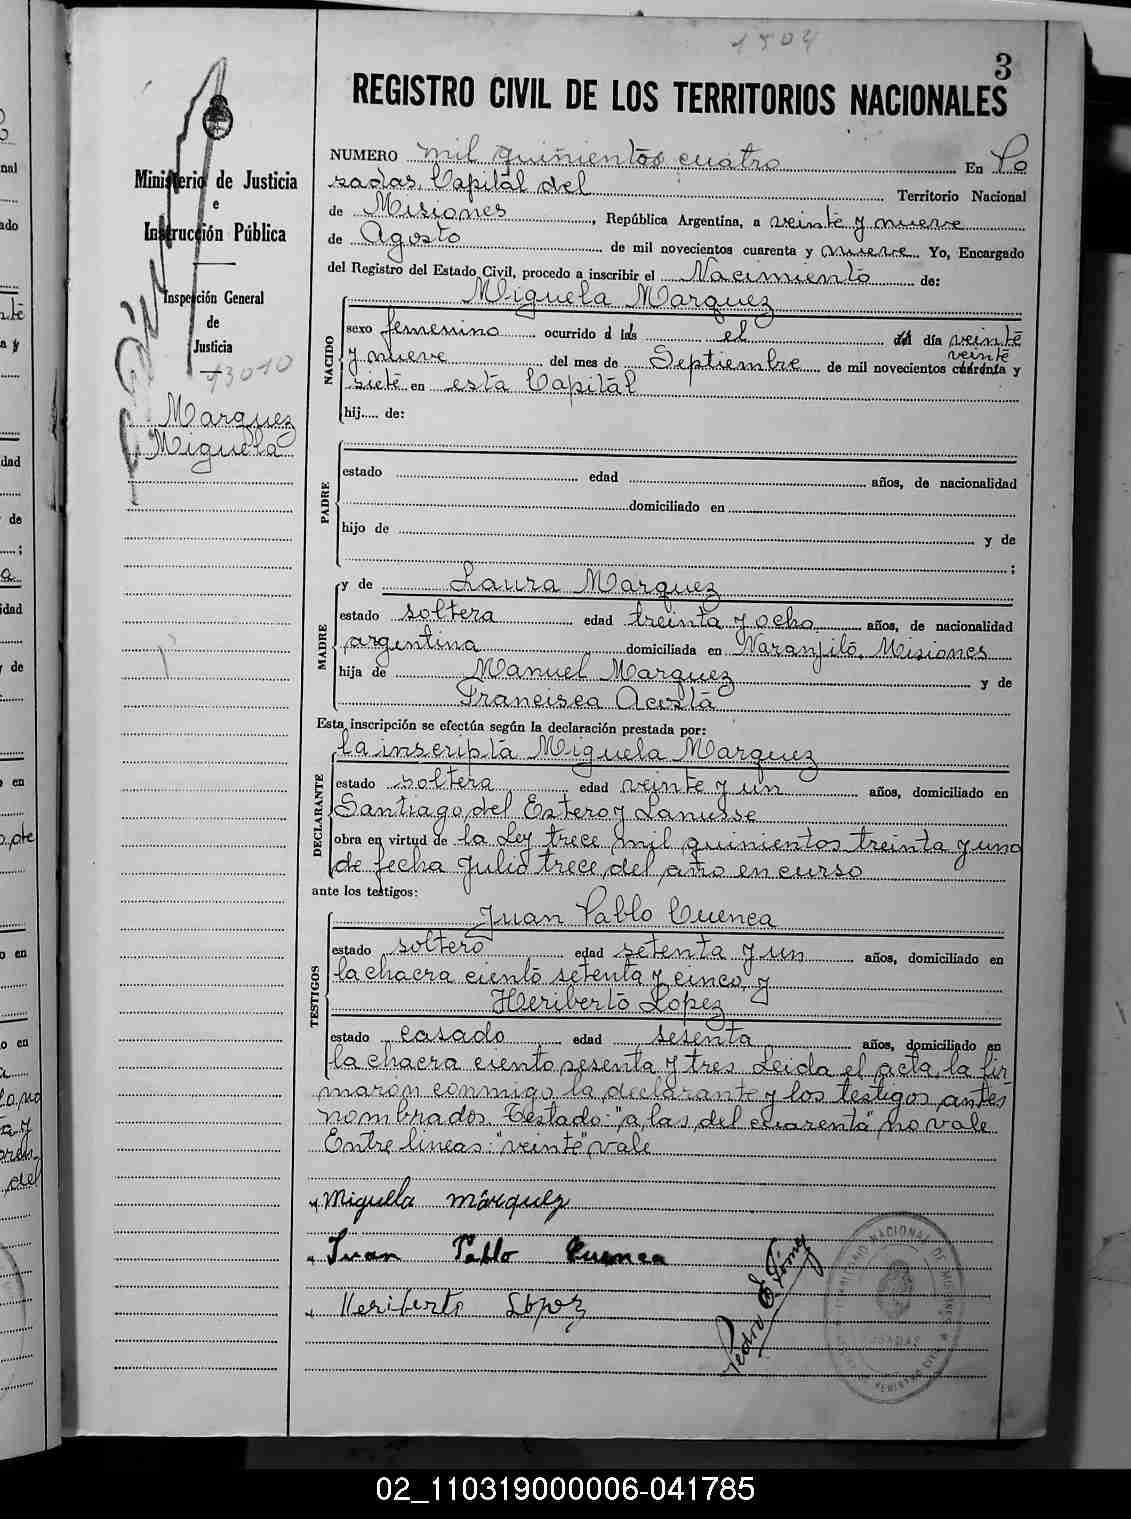 1504
3
REGISTRO CIVIL DE LOS TERRITORIOS NACIONALES
Ministerio de Justicia
e
Instrucción Pública
Inspección General
de
Justicia
13010
Marquez
Miguela
NUMERO mil quinientos cuatro En Po
sadas, Capital del Territorio Nacional
de Misiones, República Argentina, a veinte y nueve
de Agosto de mil novecientos cuarenta y nueve. Yo, Encargado
del Registro del Estado Civil, procedo a inscribir el Nacimiento de:
NACIDO
Miguela Marquez
sexo femenino ocurrido a las el del día veinte
y nueve del mes de Septiembre de mil novecientos cuarenta y
veinte
siete en esta Capital
hij..... de:
PADRE
estado edad años, de nacionalidad
domiciliado en
hijo de y de
;
MADRE
y de Laura Marquez
estado soltera edad treinta y ocho años, de nacionalidad
argentina domiciliada en Naranjito, Misiones
hija de Manuel Marquez y de
Francisca Acosta
Esta inscripción se efectúa según la declaración prestada por:
DECLARANTE
la inscripta Miguela Marquez
estado soltera edad veinte y un años, domiciliado en
Santiago del Estero y Lanusse
obra en virtud de la Ley trece mil quinientos treinta y uno
de fecha Julio trece del año en curso
ante los testigos:
TESTIGOS
Juan Pablo Cuenca
estado soltero edad setenta y un años, domiciliado en
la chacra ciento setenta y cinco, y
Heriberto Lopez
estado casado edad sesenta años, domiciliado en
la chacra ciento sesenta y tres Leida el acta, la fir-
maron conmigo la declarante y los testigos antes
nombrados Testado: "a las del cuarenta" no vale
Entre lineas: "veinte" vale
Miguela Márquez
Juan Pablo Cuenca
Heriberto López
Pedro E.
TERRITORIO NACIONAL DE MISIONES
POSADAS
REGISTRO CIVIL
02_110319000006-041785